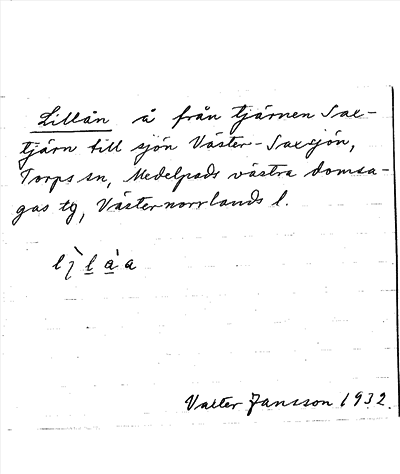 Lillån å från tjärnen Sax-
tjärn till sjön Väster-Saxsjön,
Torps sn, Medelpads västra domsa-
gas tg, Västernorrlands l.
Valter Jansson 1932.